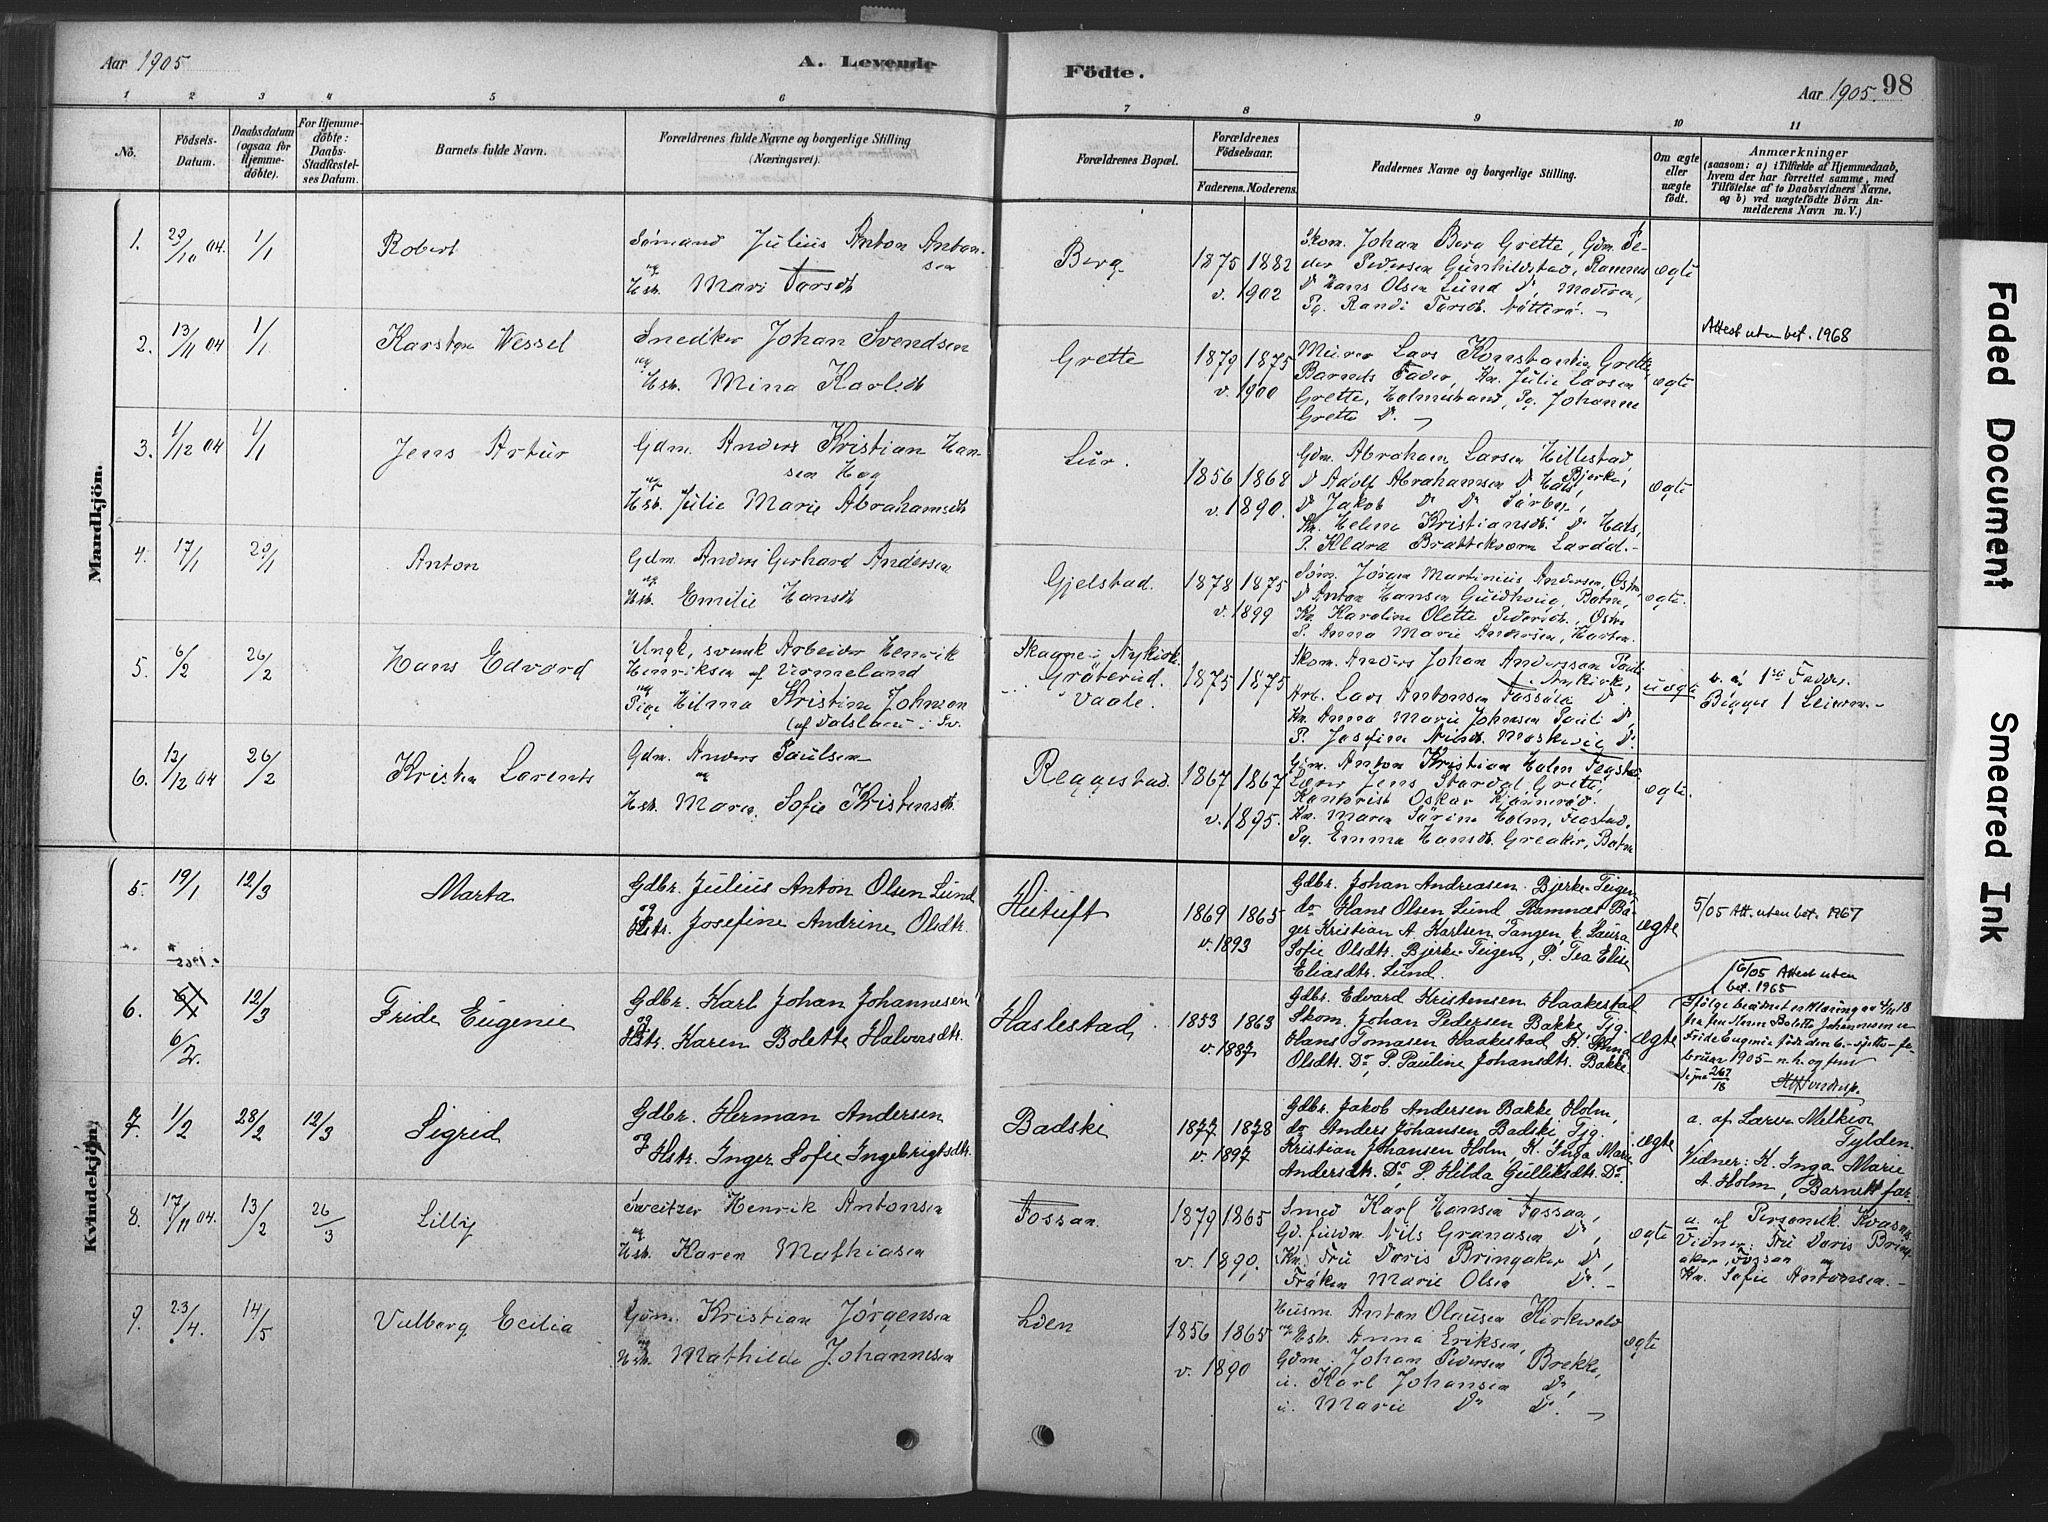 Aar 1905
A. Levende
Födte.
Aar 1905.
98
1 2 3 4 5 6 7 8 9 10 11
No.
Födsels-Datum.
Daabsdatum (ogsaa for Hjemme-döbte).
For Hjemme-döbte: Daabs-Stadfæstel-ses Datum.
Barnets fulde Navn.
Forældrenes fulde Navne og borgerlige Stilling
(Næringsvei).
Forældrenes Bopæl.
Forældrenes Födselsaar.
Faderens. Moderens.
Faddernes Navne og borgerlige Stilling.
Om ægte eller uægte födt.
Anmærkninger
(saasom: a) i Tilfælde af Hjemmedaab,
hvem der har forrettet samme, med
Tilföielse af to Daabsvidners Navne,
og b) ved uægtefödte Börn An-
melderens Navn m. V.)
Mandkjön.
1. 29/10 04 1/1
Robert
Sømand Julius Anton Anton-
sen
og
Hst. Mari Tarsdt
Berg
1875 1882
v. 1902
Skom. Johan Berg Grette, Gdm. Pe-
der Pedersen Gunhildstad, Ramnes
Do Hans Olsen Lund Do, Moderen,
Pg. Randi Tarsdt. Nötterö.
ægte
2. 13/11 04 1/1
Karsten Wessel
Snedker Johan Svendsen
og
Hst. Mina Karlsdt
Grette
1879 1875
v. 1900
Murer Lars Konstantin Grette,
Barnets Fader, Kn. Julie Larsen
Grette, Holmestrand, Pg. Johanne
Grette Do.
ægte
Attest uten bet. 1968
3. 1/12 04 1/1
Jens Artur
Gdm. Anders Kristian Han-
sen Hag
og
Hst. Julie Marie Abrahamsdt
Lur.
1856 1868
v. 1890.
Gdm. Abraham Larsen Hillestad
Do Adolf Abrahamsen Do Hals, Bjerke,
Do Jakob Do Do Sörby,
Kn. Helene Kristiansdt. Do Hals,
P. Klara Brattekværn Lardal.
ægte
4. 17/1 29/1
Anton
Gdm. Anders Gerhard Andersen
og
Hst. Emilie Hansdt
Gjelstad.
1878 1875
v. 1899
Söm. Jørgen Martinius Andersen, Östre
Do Anton Hansen
Kn. Karoline Olette Pedersdt., Östre
P. Anna Marie Andersen, Horten
ægte.
5. 6/2 26/2
Hans Edvard
Ungk., svensk Arbeider Henrik
Henriksen af Vermeland
og
Pige Hilma Kristine Johnson
(af Dalsland i Sv.
Skagne i Nykirk.
Gräterud.
Vaale.
1875 1875
Skom. Anders Johan Anderssen Pauli
Nykirk,
Arb. Lars Antonsen Fossaas Do
Kn. Anna Marie Johnsen Pauli Do,
P. Josefine Do.
uægte
b. a. 1ste Fadder.
Begges 1 Leierm.
6. 12/12 04 26/2
Kristen Lorents
Gdm. Anders Paulsen
og
Hst. Maren Sofie Kristensdt.
Reggestad.
1867 1867
v. 1895.
Gdm. Anton Kristian Holm Fegstad
Lærer Jens Stordal, Grette,
Oskar Kjönneröd.
Kn. Maren Sörine Holm, Fegstad,
Pg. Emma Hansdt. Greaker, Botne
ægte.
Kvindekjön.
5. 19/1 12/3
Marta
Gdbr. Julius Anton Olsen Lund
og
Hstr. Josefine Andrine Olsdtr.
Hutuft
1869 1865
v. 1893
Gdbr. Johan Andreasen Bjerke-Teigen,
do Hans Olsen Lund Ramnes Ba-
ger Kristian A. Karlsen, Tangen, k. Laura
Sofie Olsdtr. Bjerke-Teigen, P. Tea Elise
Eliasdtr. Lund.
ægte
5/05 Att. uten bet. 1967
6. 6/1 12/3
6/2.
Fride Eugenie
Gdbr. Karl Johan Johannesen
og
Hstr. Karen Bolette Halvorsdtr.
Haslestad
1853 1863
v. 1887
Gdbr. Edvard Kristensen Haakestad
Skom. Johan Pedersen Bakke, Tjg.
Hans Tomasen Haakestad K.
Olsdtr. Do, P. Pauline Johansdtr. Bakke
ægte
6/05 Attest uten
bet. 1965
Ifölge beediget erklæring av 4/10 18
fra fru Karen Bolette Johannesen er
Fride Eugenie född den 6. - sjette - fe-
bruar 1905 - n.h. og fem
Se jnr 267/18
7. 1/2 28/2 12/3
Sigrid
Gdbr. Herman Andersen
og
Hstr. Inger Sofie Ingebrigtsdtr.
Badski
1877 1878
v. 1897
Gdbr. Jakob Andersen Bakke Holm,
do Anders Johansen Badski Tjg.
Kristian Johansen Holm, K. Inga Marie
Andersdtr. Do, P. Hilda Gulliksdtr. Do.
ægte
a. af Lærer Melkior
Tylden.
Vidner: K. Inga Marie
A. Holm, Barnets far.
8. 17/11 04. 13/2 26/3
Lilly
Sveitzer Henrik Antonsen
og
Hst. Karen Mathiasen
Fossan.
1879 1865
v. 1890.
Smed Karl Hansen Fossan,
Nils Granasen Do,
Kn. Fru Doris Bringaker Do,
Fröken Marie Olsen Do.
ægte
a. af Personelk. Kvasnes
Vidner: Fru Doris Bring-
aker, Fossan og
Kn. Sofie Antonsen.
9. 23/4. 14/5
Valborg Ecilia
Gdm. Kristian Jørgensen
og
Hst. Mathilde Johannesen
Lien
1856 1865
v. 1890
Husm. Anton Olausen Kirkevold
og Hst. Anna Eriksen,
Gdm. Johan Pedersen Brekke,
u. Karl Johansen Do,
u. Marie Do Do.
ægte
Faded Document
Smeared Ink